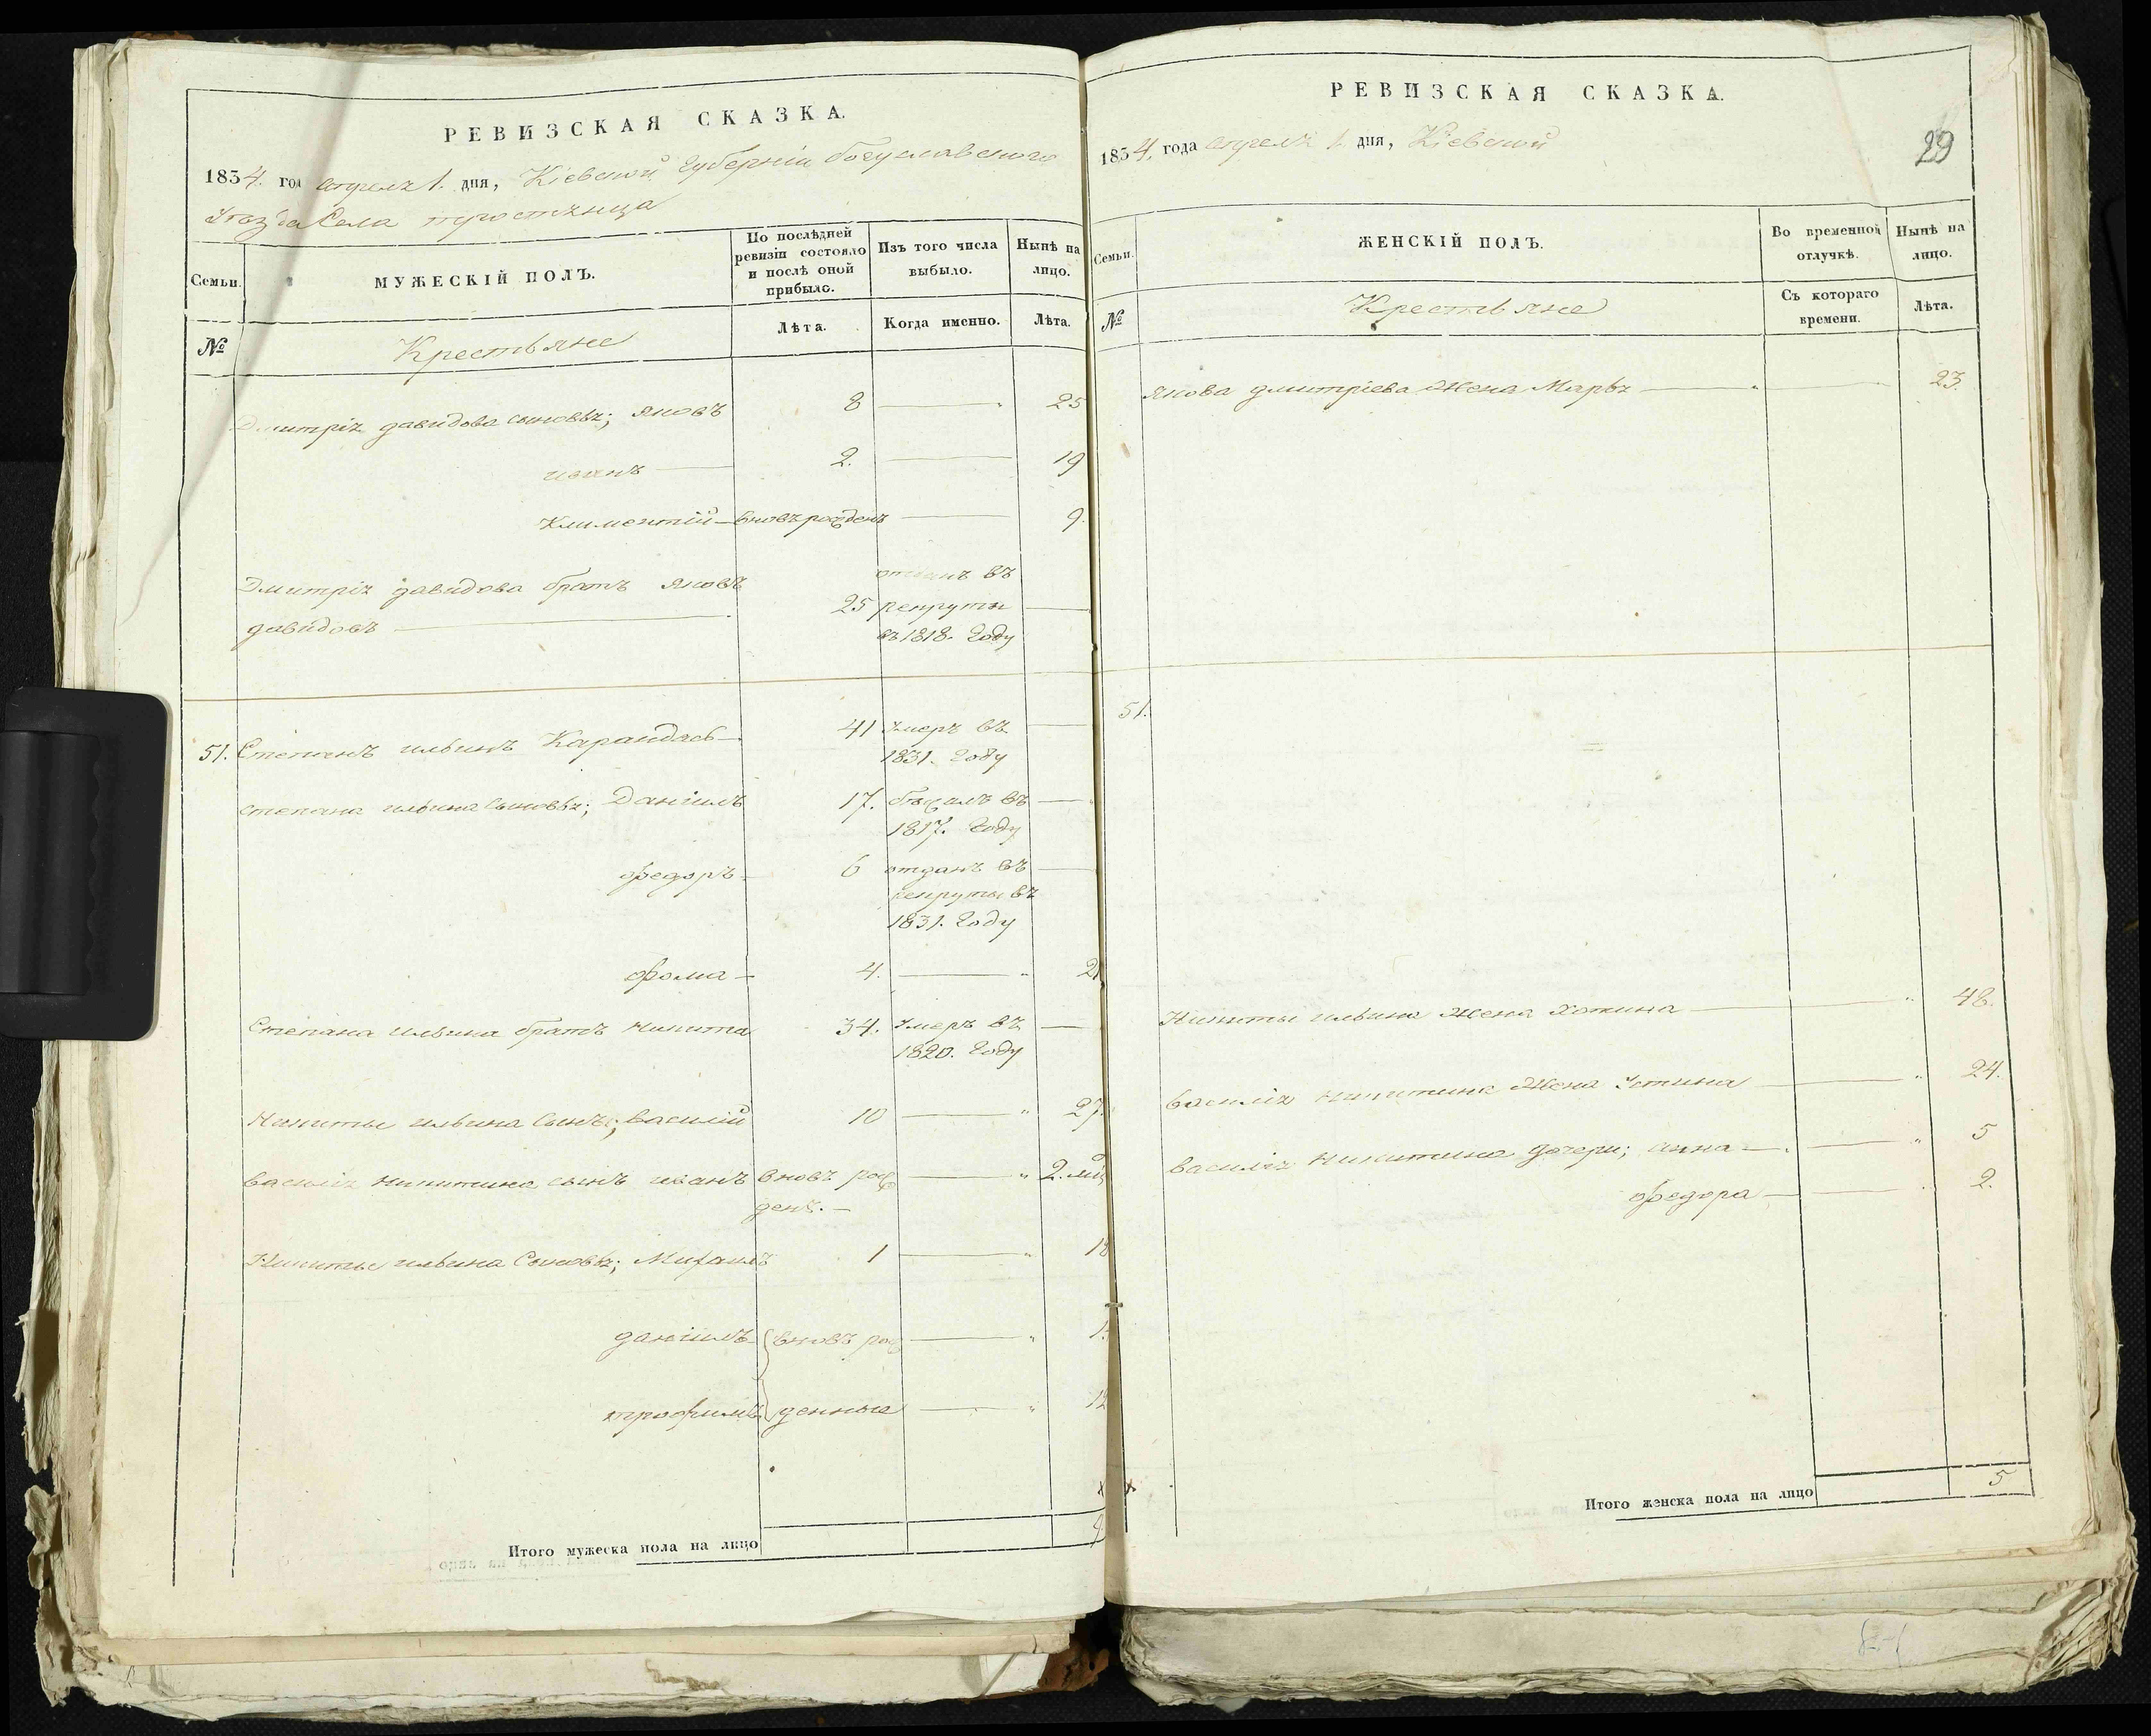 РЕВИЗСКАЯ СКАЗКА.
1834. год апреля 1. дня, Кіевской Губерніи богуславского
уезда Села
Семьи.
МУЖЕСКІЙ ПОЛЪ.
По послѣдней ревизіи состояло и послѣ оной прибыло.
Изъ того числа выбыло.
Нынѣ на лицо.
№
Крестьяне
Лѣта.
Когда именно.
Лѣта.
Дмитрія давидова сыновья; яковъ 8 25
иванъ 2. 19
Климентій вновь рожденъ 9.
Дмитрія давидова братъ яковъ
давидовъ 25 отданъ въ
рекруты
въ 1818. Году
51. Степанъ ильинъ Карандась 41 умеръ въ
1831. Году
степана ильина сыновья; Даніилъ 17. бежалъ въ
1817. Году
федоръ 6 отданъ въ
рекруты въ
1831. Году
фома 4. 21
Степана ильина братъ никита 34. умеръ въ
1820. Году
Никиты ильина сынъ; василій 10 27.
василія никитина сынъ иванъ вновь рож
денъ. 2.
Никиты ильина Сыновья; Михаилъ 1 18
даніилъ вновь рож
трофимъ денные 12
Итого мужеска пола на лицо 9
РЕВИЗСКАЯ СКАЗКА.
29
1834. года апреля 1. дня, Кіевской
Семьи.
ЖЕНСКІЙ ПОЛЪ.
Во временной отлучкѣ.
Нынѣ на лицо.
№
Крестьяне
Съ котораго времени.
Лѣта.
якова дмитріева жена Марья 23.
51.
Никиты ильина жена 48.
василія никитина жена устина 24.
василія никитина дочери; анна 5
федора 2.
Итого женска пола на лицо 5